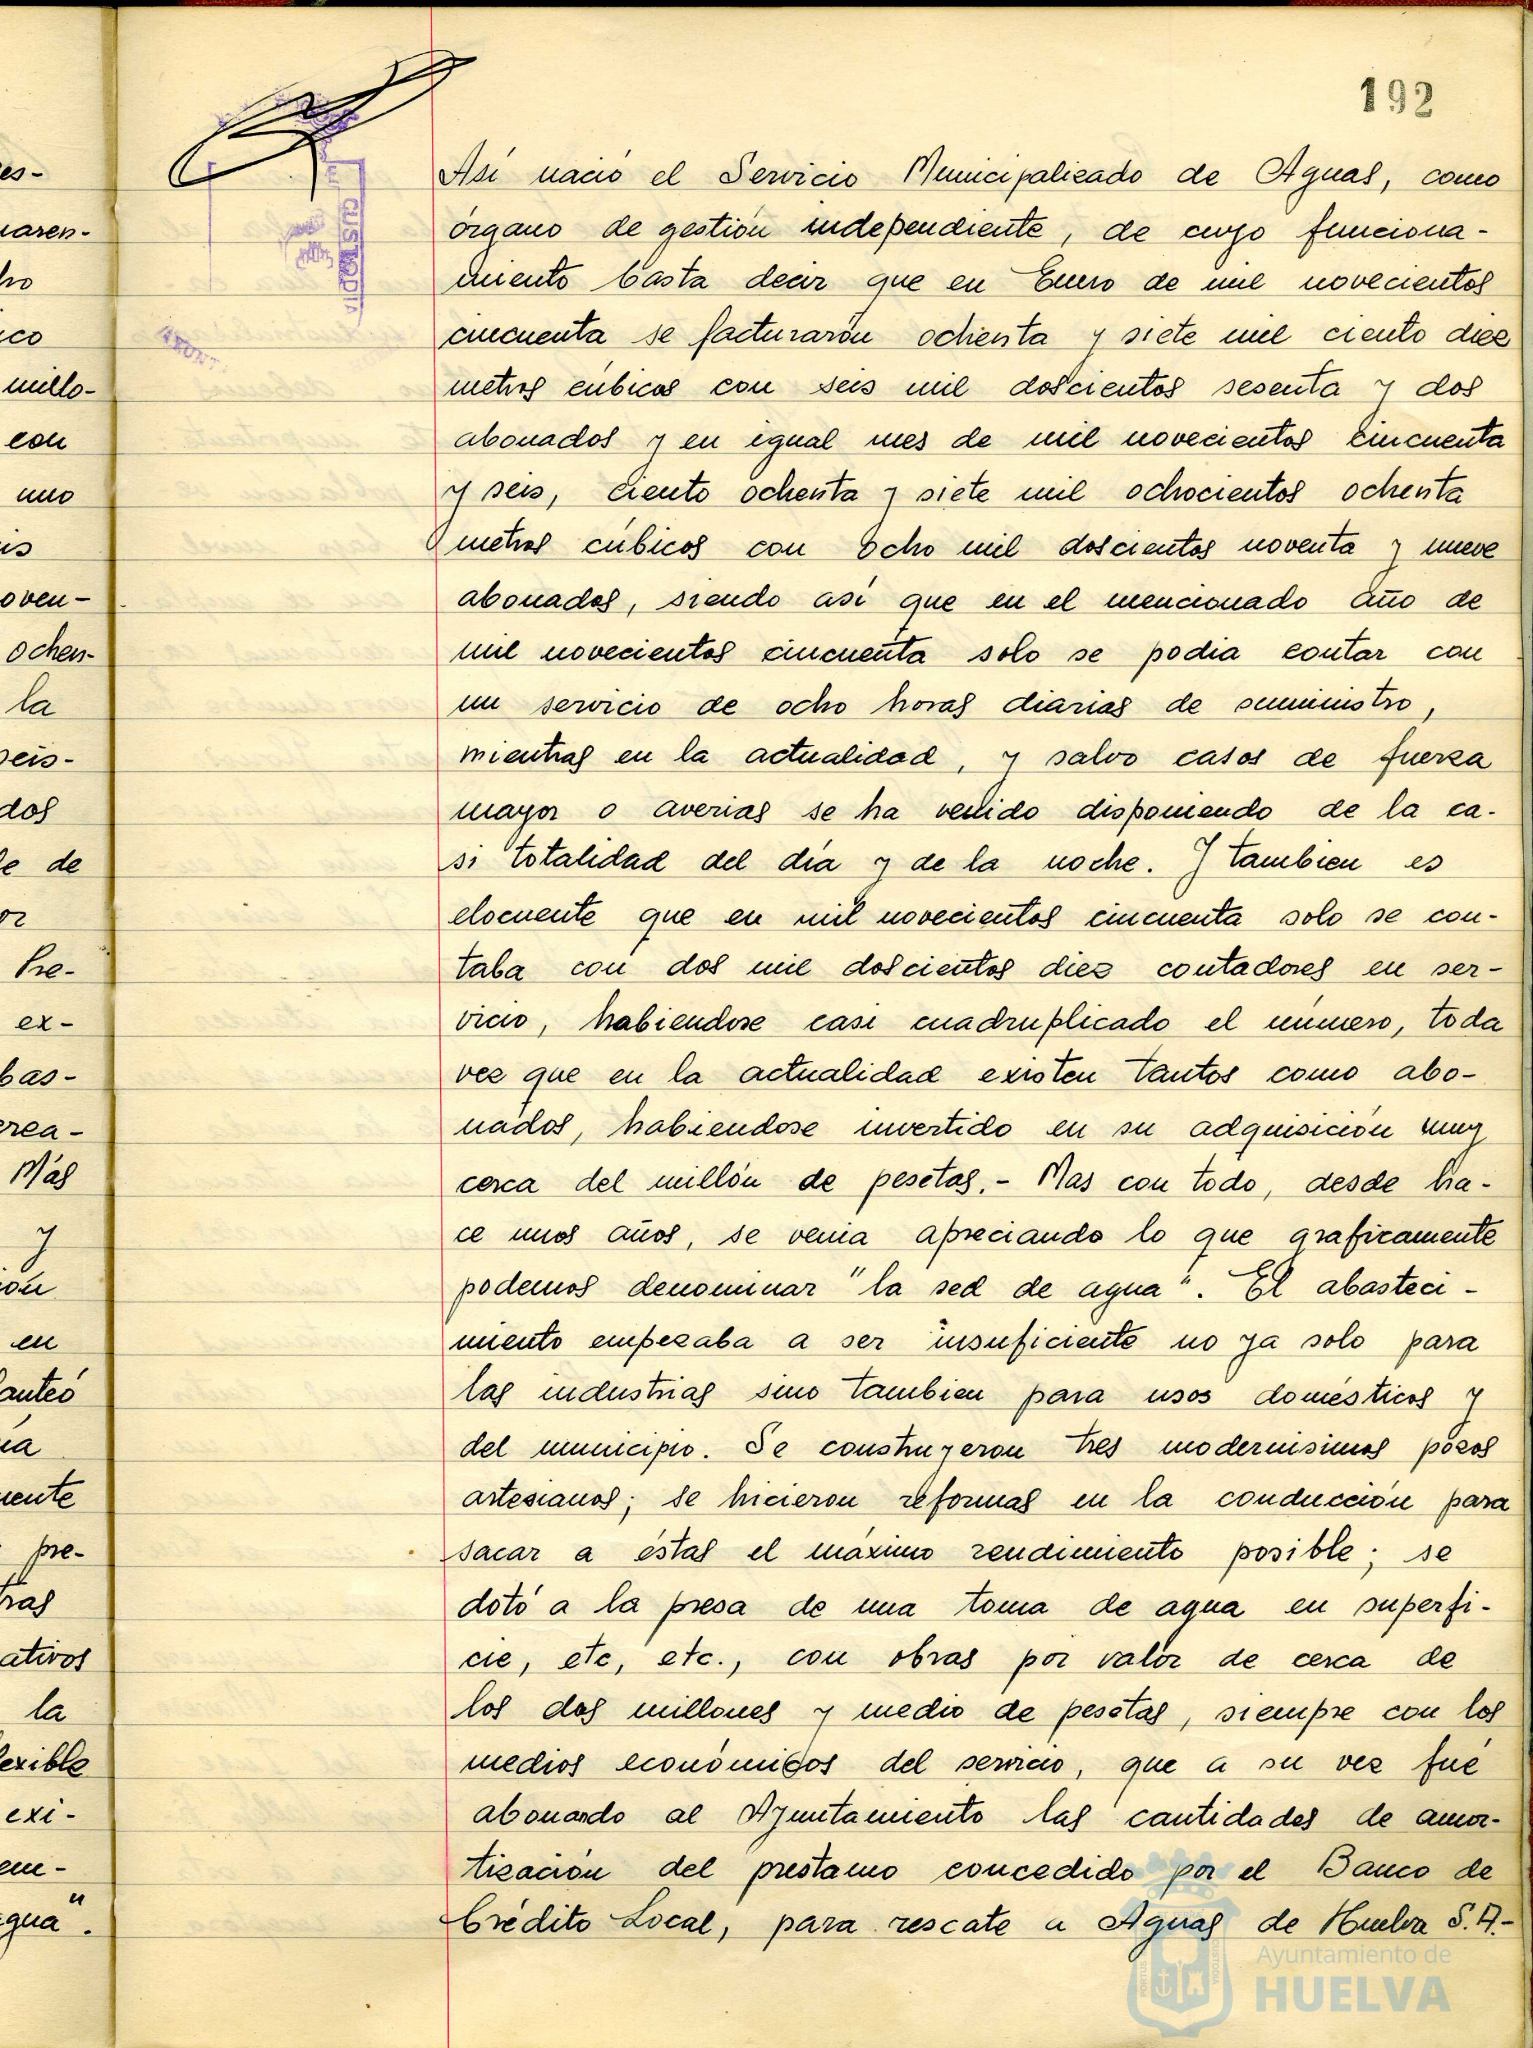 192
Así nació el Servicio Municipalizado de Aguas, como
órgano de gestión independiente, de cuyo funciona-
miento basta decir que en Enero de mil novecientos
cincuenta se facturarón ochenta y siete mil ciento diez
metros cúbicos con seis mil doscientos sesenta y dos
abonados y en igual mes de mil novecientos cincuenta
y seis, ciento ochenta y siete mil ochocientos ochenta
metros cúbicos con ocho mil doscientos noventa y nueve
abonados, siendo así que en el mencionado año de
mil novecientos cincuenta solo se podia contar con
un servicio de ocho horas diarias de suministro,
mientras en la actualidad, y salvo casos de fuerza
mayor o averias se ha venido disponiendo de la ca-
si totalidad del día y de la noche. Y tambien es
elocuente que en mil novecientos cincuenta solo se con-
taba con dos mil doscientos diez contadores en ser-
vicio, habiendose casi cuadruplicado el número, toda
vez que en la actualidad existen tantos como abo-
nados, habiendose invertido en su adquisición muy
cerca del millón de pesetas.- Mas con todo, desde ha-
ce unos años, se venia apreciando lo que graficamente
podemos denominar "la sed de agua". El abasteci-
miento empezaba a ser insuficiente no ya solo para
las industrias sino tambien para usos domésticos y
del municipio. Se construyeron tres modernisimos pozos
artesianos; se hicieron reformas en la conducción para
sacar a éstas el máximo rendimiento posible; se
dotó a la presa de una toma de agua en superfi-
cie, etc, etc., con obras por valor de cerca de
los dos millones y medio de pesetas, siempre con los
medios económicos del servicio, que a su vez fué
abonando al Ayuntamiento las cantidades de amor-
tización del prestamo concedido por el Banco de
Crédito Local, para rescate a Aguas de Huelva S.A.-
es-
uaren-
ho
ico
millo-
con
uno
is
oven-
ochen-
la
seis-
dos
le de
or
Pre-
ex-
bas-
crea-
Más
y
ión
en
lanteó
ia
mente
pre-
tras
ativos
la
lexible
exi-
em-
agua".
CUSTODI
AYUNT
Ayuntamiento de
HUELVA